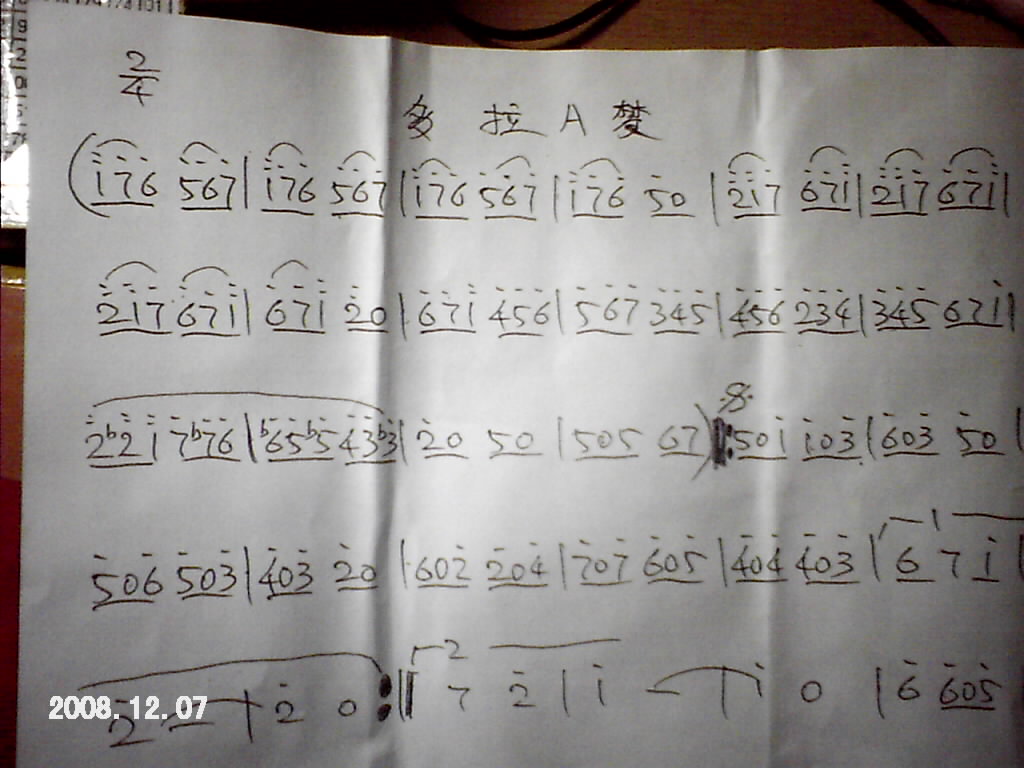 2/4
多 拉 A 梦
(i̇76 567|i̇76 567|i̇76 567|i̇76 50|2i̇7 67i̇|2i̇7 67i̇|
2i̇7 67i̇|67i̇ 20|67i̇ 456|567 345|456 234|345 67i̇|
2♭2i̇ 7♭76|♭65♭5 43♭3|20 50|505 67)𝄋‖:50i̇ i̇03|603 50|
506 503|403 20|602 204|707 605|404 403|1 6 7 i̇|
2 —|2 0:‖2 7 2|i̇ —|i̇ 0|6 605
2008.12.07